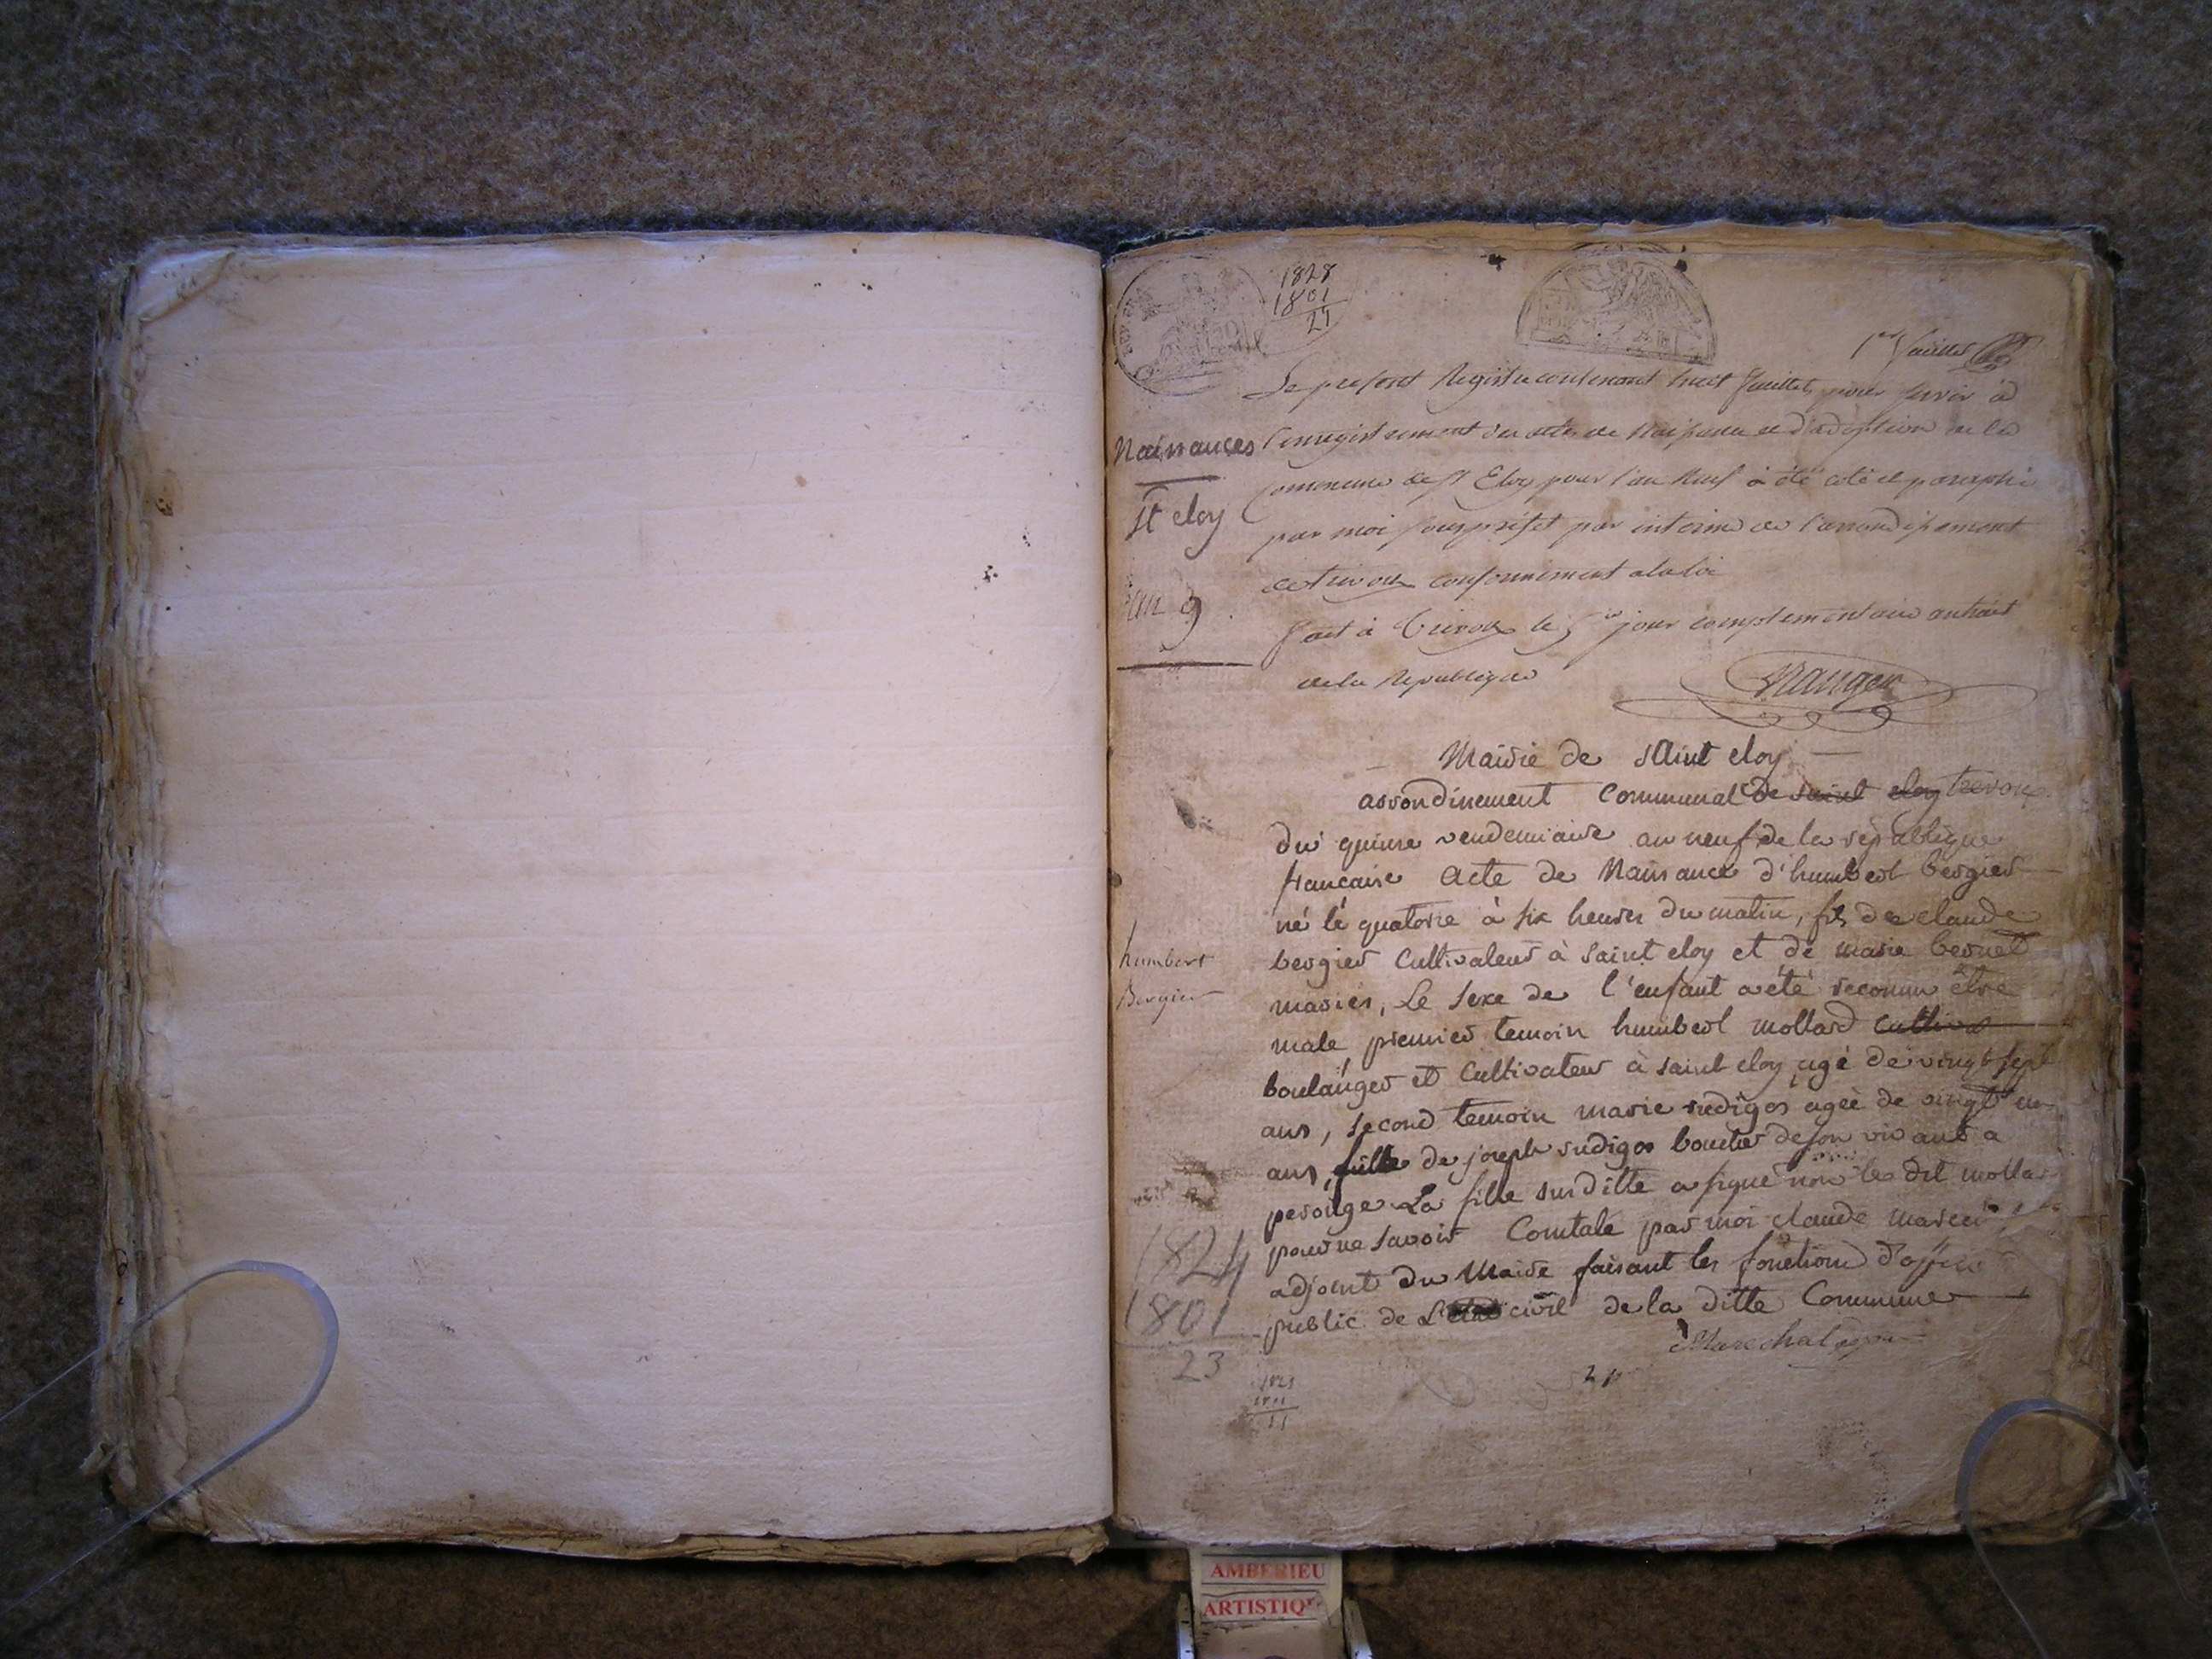 1828
1801
27
1er feuillet
Le present Registre contenant huit feuillets pour servir à
Naissances
l'enregistrement des actes de Naissance et d'adoption de la
commune de St Eloy pour l'an Neuf à été coté et paraphé
St eloy
par moi souspréfet par interim de l'arrondissement
de Trevoux conformement à la loi
an 9
fait à Trevoux le 5e jour complementaire an huit
de la Republique
Mairie de saint eloy
arrondinement Communal de saint eloy trevoux
du quinse vendemiaire an neuf de la république
francaise Acte de Naissance d'humbert bergier
né le quatorse à six heures du matin, fils de claude
humbert
Bergier
bergier Cultivateur à saint eloy et de marie bernet
mariés, Le sexe de l'enfant a été reconnu être
male, premier temoin humbert mollard cultiva
boulanger et Cultivateur à saint eloy agé de vingt sept
ans, second temoin marie rudigos agée de vingt un
ans, fille de joseph rudigos boucher de son vivant a
perouge La fille susditte a signé non le dit mollar
pour ne savoir Constaté par moi claude
adjoint du Maire faisant les fonctions
public de civil de la ditte Commune
Marechal
1824
1801
23
AMBERIEU
ARTISTIQ